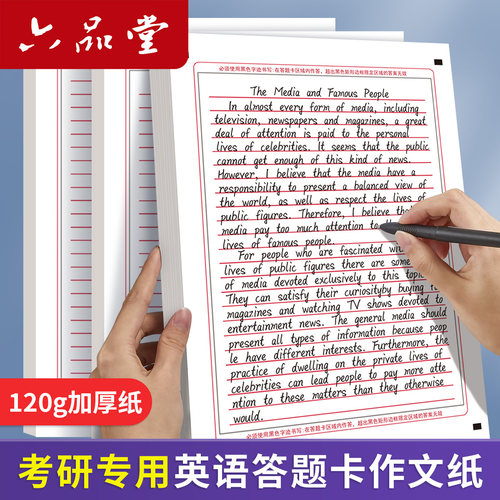 六品堂
必须使用黑色字迹书写:在答题卡区域内作答,超出黑色矩形边框限定区域的答案无效
The Media and Famous People
In almost every form of media, including
television, newspapers and magazines, a great
deal of attention is paid to the personal
lives of celebrities. It seems that the public
cannot get enough of this kind of news.
However, I believe that the media have a
responsibility to present a balanced view of
the world, as well as respect the lives of
public figures. Therefore, I believe the
media pay too much attention to
lives of famous people.
For people who are fascinated with
lives of public figures there are some
of media devoted exclusively to this topic
They can satisfy their curiosityby buying
magazines and watching TV shows devoted to
entertainment news. The general media should
present all types of information because peop
le have different interests. Furthermore, the
practice of dwelling on the private lives of
celebrities can lead people to pay more atte
ntion to these matters than they otherwise
would.
必须使用黑色字迹书写:在答题卡区域内作答,超出黑色矩形边框限定区域的答案无效
120g加厚纸
考研专用英语答题卡作文纸